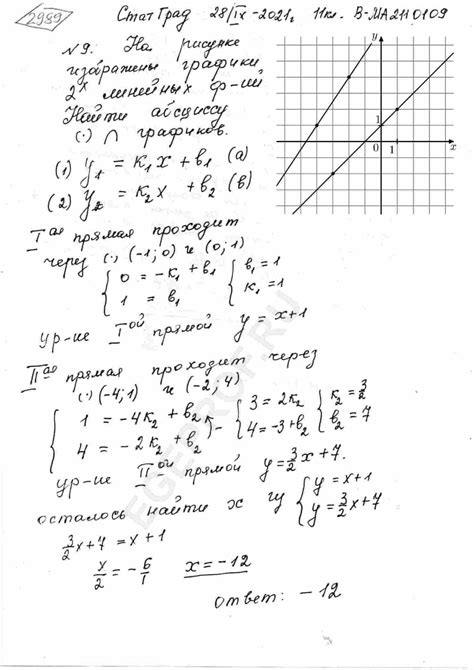 2989
СтатГрад 28/IX-2021г. 11кл. В-МА2110109
N 9. На рисунке
изображены графики
2х линейных ф-ий
Найти абсциссу
(·) ∩ графиков.
(1) y₁ = k₁x + b₁ (a)
(2) y₂ = k₂x + b₂ (b)
y
1
0
1
x
Iая прямая проходит
через (·) (-1; 0) и (0; 1)
{ 0 = -k₁ + b₁ { b₁ = 1
1 = b₁ k₁ = 1
ур-ие Iой прямой y = x+1
IIая прямая проходит через
(·) (-4; 1) и (-2; 4)
{ 1 = -4k₂ + b₂ - { 3 = 2k₂ { k₂ = 3/2
4 = -2k₂ + b₂ 4 = -3 + b₂ b₂ = 7
ур-ие IIой прямой y = 3/2x + 7.
осталось найти x из { y = x+1
y = 3/2x + 7
3/2x + 7 = x + 1
x/2 = -6/1 x = -12
ответ: -12
EGEPROF.RU